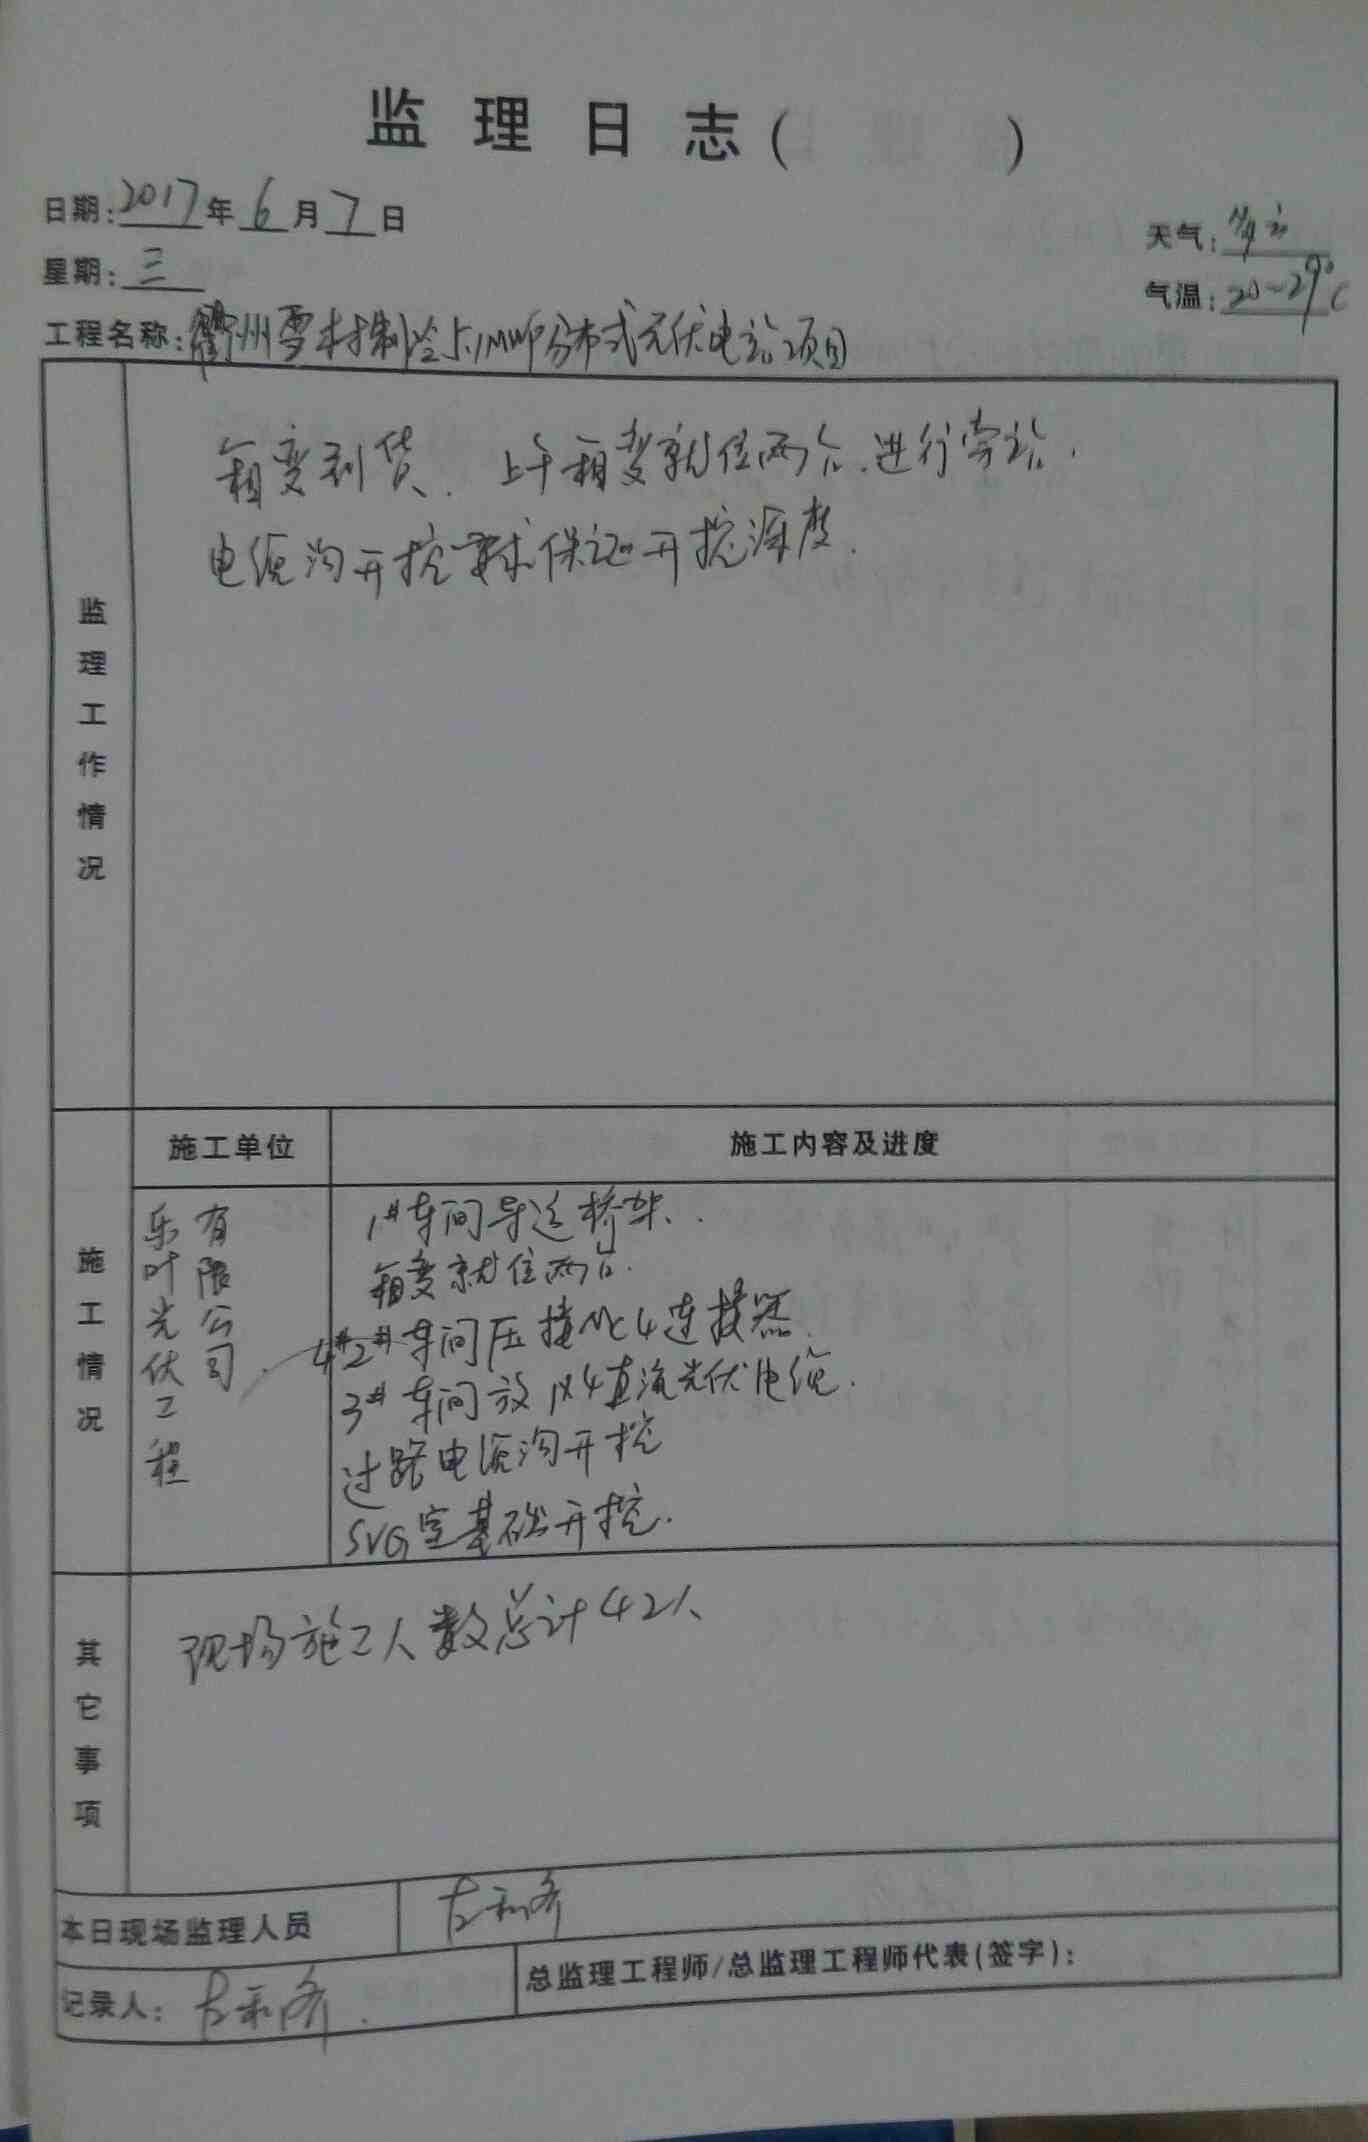 监理日志( )
日期:2017年6月7日
天气:多云
星期:三
气温:20~29℃
工程名称:衢州雪村制冷5.1MWP分布式光伏电站项目
监理工作情况
箱变到货、上午箱变就位两台.进行旁站.
电缆沟开挖要求保证开挖深度.
施工情况
施工单位
施工内容及进度
乐叶光伏工程
有限公司.
1#车间导运桥架.
箱变就位两台.
4#2#车间压接MC4连接器.
3#车间放1X4直流光伏电缆.
过路电缆沟开挖
SVG室基础开挖.
其它事项
现场施工人数总计42人
本日现场监理人员
记录人:
总监理工程师/总监理工程师代表(签字):